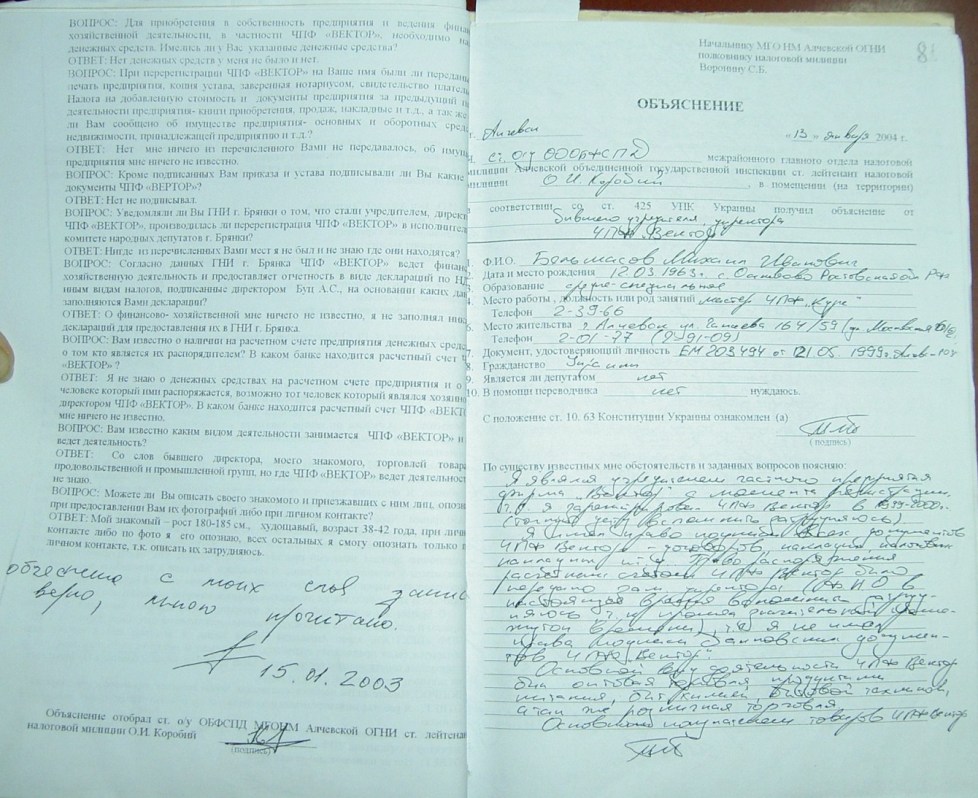 ВОПРОС: Для приобретения в собственность предприятия и ведения
хозяйственной деятельности, в частности ЧПФ «ВЕКТОР», необходимо
денежных средств. Имелись ли у Вас указанные денежные средства?
ОТВЕТ: Нет денежных средств у меня не было и нет.
ВОПРОС: При перерегистрации ЧПФ «ВЕКТОР» на Ваше имя были ли
печать предприятия, копия устава, заверенная нотариусом, свидетельство
Налога на добавленную стоимость и документы предприятия за предыдущий
деятельности предприятия- книги приобретения, продаж, накладные и т.д., а так
ли Вам сообщено об имуществе предприятия- основных и оборотных
недвижимости, принадлежащей предприятию и т.д.?
ОТВЕТ: Нет мне ничего из перечисленного Вами не передавалось, об
предприятия мне ничего не известно.
ВОПРОС: Кроме подписанных Вам приказа и устава подписывали ли Вы какие
документы ЧПФ «ВЕРТОР»?
ОТВЕТ: Нет не подписывал.
ВОПРОС: Уведомляли ли Вы ГНИ г. Брянки о том, что стали учредителем,
ЧПФ «ВЕКТОР», производилась ли перерегистрация ЧПФ «ВЕКТОР» в
комитете народных депутатов г. Брянки?
ОТВЕТ: Нигде из перечисленных Вами мест я не был и не знаю где они находятся?
ВОПРОС: Согласно данных ГНИ г. Брянка ЧПФ «ВЕКТОР» ведет
хозяйственную деятельность и предоставляет отчетность в виде деклараций по
иным видам налогов, подписанные директором Буц А.С., на основании каких
заполняются Вами декларации?
ОТВЕТ: О финансово- хозяйственной мне ничего не известно, я не заполнял
деклараций для предоставления их в ГНИ г. Брянка.
ВОПРОС: Вам известно о наличии на расчетном счете предприятия денежных
о том кто является их распорядителем? В каком банке находится расчетный счет
«ВЕКТОР» ?
ОТВЕТ: Я не знаю о денежных средствах на расчетном счете предприятия и о
человеке который ими распоряжается, возможно тот человек который являлся
директором ЧПФ «ВЕКТОР». В каком банке находится расчетный счет ЧПФ
мне ничего не известно.
ВОПРОС: Вам известно каким видом деятельности занимается ЧПФ «ВЕКТОР» и
ведет деятельность?
ОТВЕТ: Со слов бывшего директора, моего знакомого, торговлей
продовольственной и промышленной групп, но где ЧПФ «ВЕКТОР» ведет
не знаю.
ВОПРОС: Можете ли Вы описать своего знакомого и приезжавших с ним лиц,
при предоставлении Вам их фотографий либо при личном контакте?
ОТВЕТ: Мой знакомый – рост 180-185 см., худощавый, возраст 38-42 года, при
контакте либо по фото я его опознаю, всех остальных я смогу опознать только
личном контакте, т.к. описать их затрудняюсь.
с моих слов
верно, мною прочитано.
15.01.2003
Объяснение отобрал ст. о/у ОБФСПД МГОНМ Алчевской ОГНИ ст.
налоговой милиции О.И. Коробий
(подпись)
Начальнику МГО НМ Алчевской ОГНИ
полковнику налоговой милиции
Воронину С.Б.
ОБЪЯСНЕНИЕ
г. Алчевск « 13 » января 2004 г.
ст. о/у межрайонного главного отдела налоговой
милиции Алчевской объединенной государственной инспекции ст. лейтенант налоговой
милиции О.И. Коробий , в помещении (на территории)
соответствии со ст. 425 УПК Украины получил объяснение от
бывшего учредителя, директора
ЧПФ Вектор
Ф.И.О. Бельмасов Михаил Иванович
Дата и место рождения 12.03.1963г.
Образование средне-специальное
Место работы , должность или род занятий мастер ЧПФ
Телефон 2-39-66
6. Место жительства г. Алчевск ул. 164/59
Телефон 2-01-77 (2-91-09)
7. Документ, удостоверяющий личность ЕМ 203494 от 1999г.
8. Гражданство Украины
9. Является ли депутатом нет
10. В помощи переводчика нет нуждаюсь.
С положение ст. 10. 63 Конституции Украины ознакомлен (а)
( подпись)
По существу известных мне обстоятельств и заданных вопросов поясняю:
Я являлся учредителем частного предприятия
фирма "Вектор" с момента регистрации,
ЧПФ Вектор в 1999-2000г.
Я имел право подписи всех документов
ЧПФ Вектор - договоров, накладных, налоговых
накладных Право распоряжения
расчетным счетом ЧПФ Вектор было
передано зам. директора (Ф И О в
настоящее время вспомнить
я не имел
права подписи банковских докумен-
тов ЧПФ "Вектор".
Основной вид деятельности ЧПФ Вектор
была оптовая торговля продуктами
питания, быт. химией, бытовой техникой,
а так же розничная торговля.
Основным товаров ЧПФ Вектор